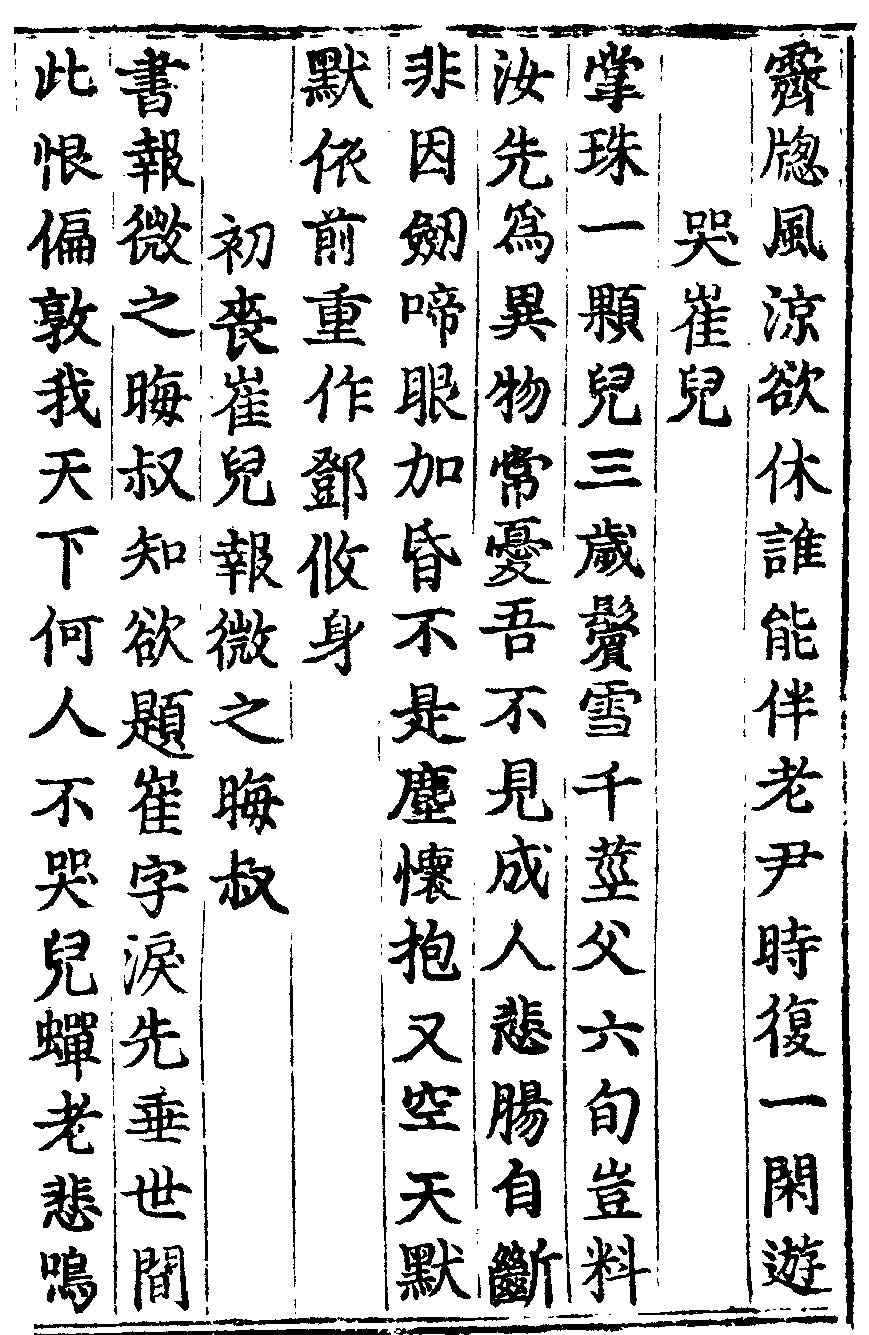 霽牕風涼欲休誰能伴老尹時復一閑遊
哭崔兒
掌珠一顆兒三歲鬢雪千莖父六旬豈料
汝先爲異物常憂吾不見成人悲腸自斷
非因劒啼眼加昏不是塵懷抱又空天默
默依前重作鄧攸身
初喪崔兒報微之晦叔
書報微之晦叔知欲題崔字淚先垂世間
此恨偏敦我天下何人不哭兒蟬老悲鳴